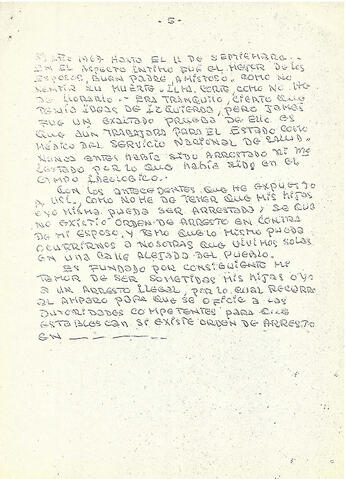 - 5 -
el año 1967 hasta el 11 de septiembre.-
En el aspecto intimo fue el mejor de los
esposos, buen padre, amistoso. Como no
sentir su muerte
de llorarlo.- Era tranquilo, cierto que
tenia ideas de izquierda, pero jamas
fue un exaltado prueba de ello es
que aun trabajara para el Estado como
médico del Servicio Nacional de Salud.-
Nunca antes habia sido arrestado ni mo
lestado por lo que habia sido en el
campo ideologico.-
Con los antecedentes que he expuesto
a Usl. como no he de temer que mis hijas
o yo misma pueda ser arrestada; se que
no existió orden de arresto en contra
de mi esposo, y temo que lo mismo pueda
ocurrirnos a nosotras que vivimos solas
en una calle alejada del pueblo.
Es fundado por consiguiente mi
temor de ser sometidas mis hijas o yo
a un arresto ilegal, por lo cual recurro
al amparo para que se oficie a las
autoridades competentes para que
establezcan si existe orden de arresto
en